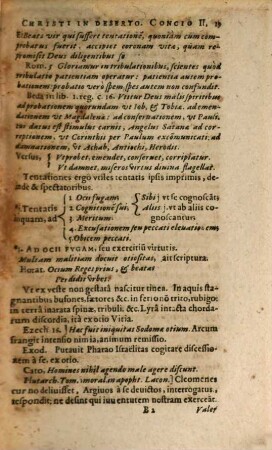 CHRISTI IN DESERTO. CONCIO II.
Beatº vir qui suffert tentationē, quoniam cum com-
probatus fuerit, accipiet coronam vitæ, quam re-
promisit Deus diligentibus se
Rom. 5 Gloriamur in tribulationibus, scientes quòd
tribulatio patientiam operatur: patientia autem pro-
bationem: probatio verò spem: spes autem non confundit.
Beda in lib. 1. reg. c. 16. Virtus Dei malis spiritibus
ad probationem quorundam vt Iob, & Tobiæ. ad emen-
dationem vt Magdalenæ: ad conseruationem, vt Pauli,
cui datus est stimulus carnis, Angelus Satanæ ad cor-
reptionem, vt Corinthus per Paulum excōmunicatꝰ: ad
damnationem, vt Achab, Antiochi, Herodis.
Versus, Vt probet, emendet, conseruet, corripiatur.
Vt damnet, miseros virtus diuina flagellat.
Tentationes ergò vtiles tentatis ipsis imprimis, de-
inde & spectatoribus.
Tentatis
inquam, ad
1 Ocii fugam
2 Cognitionē sui,
3 Meritum.
4. Excusationem seu peccati eleuationē.
5. Obicem peccati.
Sibi vt se cognoscāt
Aliis vt ab aliis co-
gnoscantur.
1. AD OCII FVGAM, seu exercitiū virtutis.
Multam malitiam docuit otiositas, ait scriptura.
Horat. Ocium Reges prius, & beatas
Perdidit vrbes.
VT EX veste non gestatā nascitur tinea. In aquis sta-
gnantibus bufones, fœtores &c. in ferro nō trito, rubigo:
in terrā inarata spinæ, tribuli, &c. Lyrā intacta chorda-
rum discordia, itā ex ocio Vitia.
Ezech 16. Hæc fuit iniquitas Sodomæ otium. Arcum
frangit intensio nimia, animum remissio.
Exod. Putauit Pharao Israelitas cogitare discessio-
nem à se, ex otio.
Cato, Homines nihil agendo male agere discunt.
Plutarch. Tom. 1 moral. in apopht. Lacon. Cleomenes
cur no deliuisset, Argiuos à se deuictos, interrogatus,
respondit: ne desint qui iuuentutem nostram exerceāt.
B 2 Valer